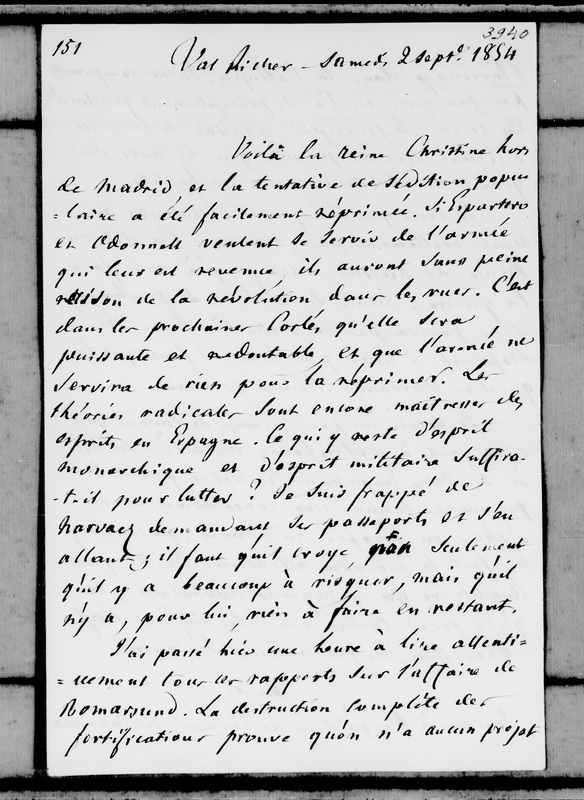 3940
151
Val Richer - Samedi 2 Septe. 1854
Voilà la reine Christine hors
de Madrid et la tentative de sédition popu
=laire a été facilement réprimée. Si Espartero
et Odonnell veulent se servir de l'armée
qui leur est revenue, ils auront sans peine
raison de la révolution dans les rues. C'est
dans les prochaines Cortès qu'elle sera
puissante et redoutable, et que l'armée ne
servira de rien pour la réprimer. Les
théories radicales sont encore maîtresses des
esprits en Espagne. Ce qui y reste d'esprit
monarchique et d'esprit militaire suffira-
-t-il pour lutter ? Je suis frappé de
Narvaez demandant ses passeports et s'en
allant ; il faut qu'il croye seulement
qu'il y a beaucoup à risquer, mais qu'il
n'y a, pour lui, rien à faire en restant.
J'ai passé hier une heure à lire attenti-
=vement tous ces rapports sur l'affaire de
Bomarsund. La destruction complète des
fortifications prouve qu'on n'a aucun projet